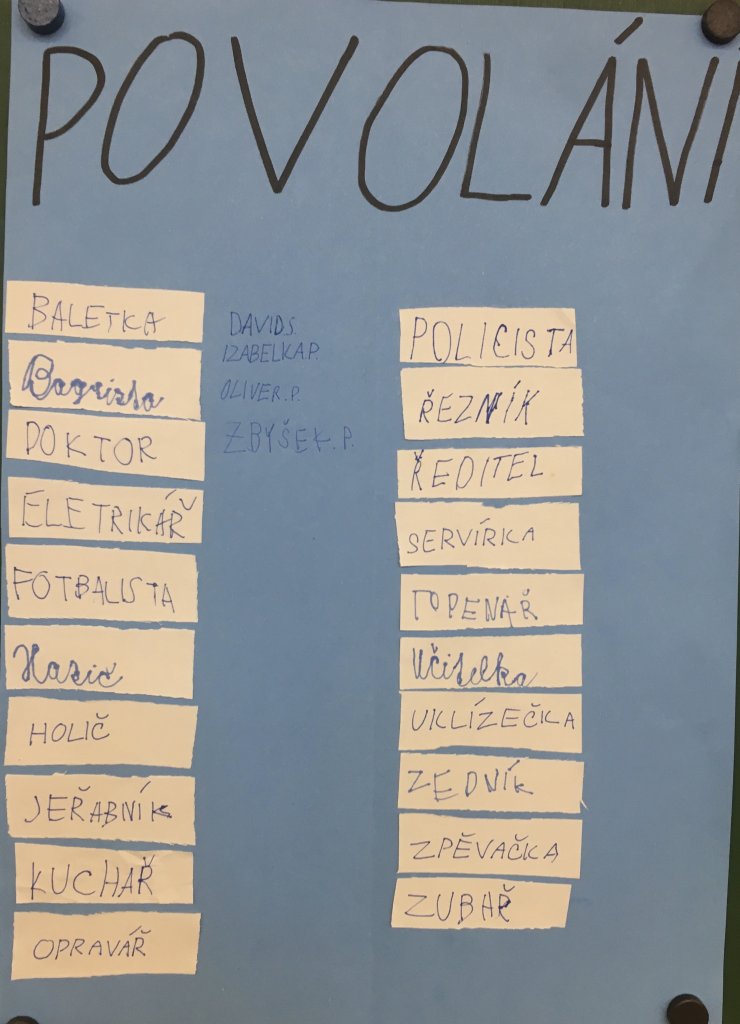 POVOLÁNÍ
BALETKA
Bagrista
DOKTOR
ELETRIKÁŘ
FOTBALISTA
Hasič
HOLIČ
JEŘABNÍK
KUCHAŘ
OPRAVÁŘ
DAVID.S.
IZABELKA.P.
OLIVER.P.
ZBYŠEK.P.
POLICISTA
ŘEZNÍK
ŘEDITEL
SERVÍRKA
TOPENÁŘ
Učitelka
UKLÍZEČKA
ZEDNÍK
ZPĚVAČKA
ZUBAŘ